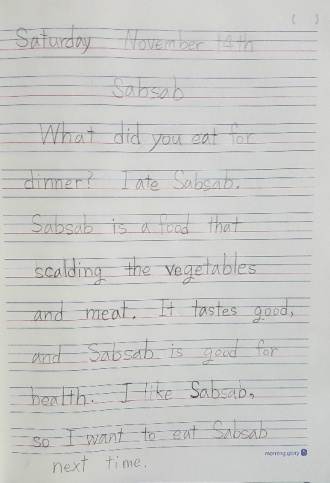 ( )
Saturday November 14th
Sabsab
What did you eat for
dinner? I ate Sabsab.
Sabsab is a food that
scalding the vegetables
and meat. It tastes good,
and Sabsab is good for
health. I like Sabsab,
so I want to eat Sabsab
morning glory
next time.